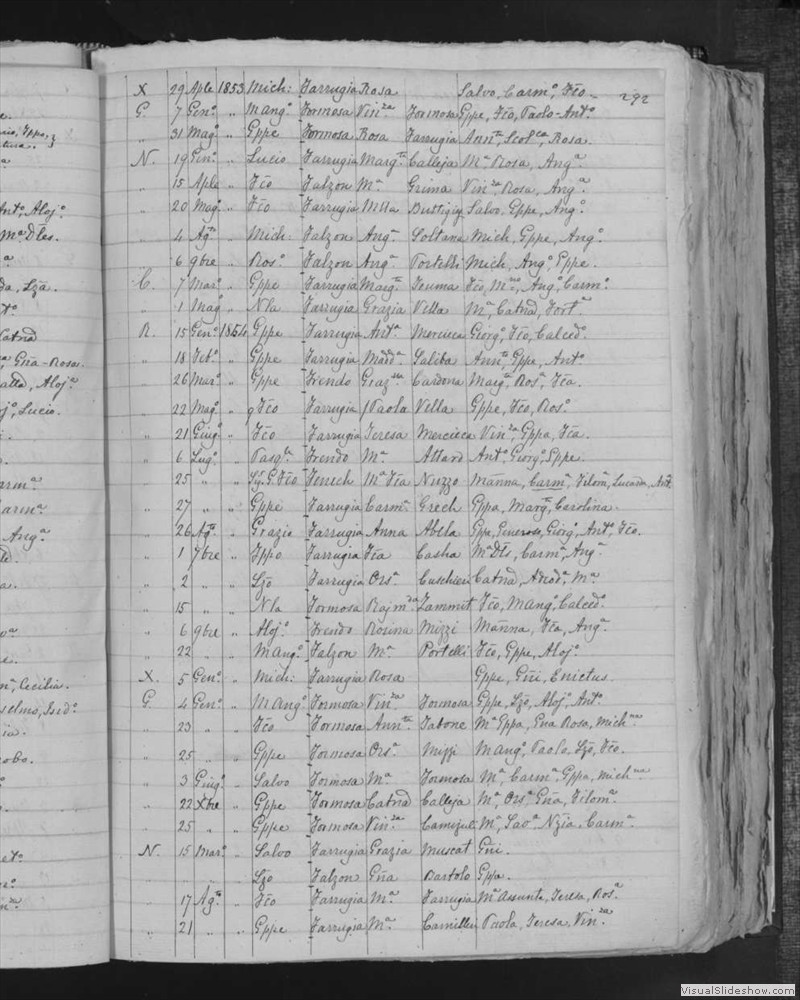 X 29 Aple 1853 Mich: Farrugia Rosa Salvo, Carmᵒ, Fčo. 292
G. 7 Genᵒ „ M Angᵒ Formosa Vinᶻᵃ Formosa Gppe, Fčo, Paolo-Antᵒ
„ 31 Magᵒ „ Gppe Formosa Rosa Farrugia Annᵗᵃ, Scolᶜᵃ, Rosa.
N. 19 Genᵒ „ Lucio Farrugia Margᵗᵃ Calleja Mᵃ Rosa, Angᵃ
„ 15 Aple „ Fčo Falzon Mᵃ Grima Vinᶻᵃ Rosa, Angᵃ
„ 20 Magᵒ „ Fčo Farrugia Buttigieg Salvo, Gppe, Angᵒ
„ 4 Agᵗᵒ „ Mich: Falzon Angᵃ Soltana Mich, Gppe, Angᵒ
„ 6 9bre „ Rosᵒ Falzon Angᵃ Portelli Mich, Angᵒ, Gppe.
C. 7 Marᵒ „ Gppe Farrugia Margᵗᵃ Seuma Fčo, Angᵒ, Carmᵒ
„ 1 Magᵒ „ Nla Farrugia Grazia Vella Mᵃ Catnā, Fortᵃ
R. 15 Genᵒ 1854 Gppe Farrugia Antᵃ Mercieca Giorgᵒ, Fčo, Calcedᵒ
„ 18 Febᵒ „ Gppe Farrugia Maddᵃ Saliba Annᵗᵒ, Gppe, Antᵒ
26 Marᵒ „ Gppe Frendo Grazᶻˡᵃ Cardona Margᵃ, Rosᵃ, Fča.
„ 22 Magᵒ „ Fčo Farrugia Paola Vella Gppe, Fčo, Rosᵒ
„ 21 Giugᵒ „ Fčo Farrugia Teresa Mercieca Vinᶻᵃ, Gppa, Fča.
„ 6 Lugᵒ „ Pasqˡᵉ Frendo Mᵃ Attard Antᵒ Giorgᵒ, Gppe.
„ 25 „ „ Sigʳ G. Fčo Fenech Mᵃ Fča Nuzzo Marña, Carmᵃ, Filomᵃ, Lucarda, Antᵃ
„ 27 „ „ Gppe Farrugia Carmᵃ Grech Gppa, Margᵗᵃ, Carolina.
„ 26 Agᵗᵒ „ Grazio Farrugia Anna Abela Gppa, Generosa, Giorgᵒ, Antᵒ, Fčo.
„ 1 7bre „ Fppo Farrugia Fča Casha Mᵃ Dls, Carmᵃ, Angᵃ
„ 2 „ „ Lzo Farrugia Orsᵃ Cuschieri Catnā, Mᵃ
„ 15 „ „ Nla Formosa Rajmᵈᵃ Zammit Fčo, M Angᵒ, Calcedᵒ
„ 6 9bre „ Alojᵒ Frendo Rosina Mizzi Marña, Fča, Angᵃ
„ 22 „ „ M Angᵒ Falzon Mᵃ Portelli Fčo, Gppe, Alojᵒ
X. 5 Genᵒ „ Mich: Farrugia Rosa Gppe, Gñi, Enictus.
G 4 Genᵒ „ M Angᵒ Formosa Vinᶻᵃ Formosa Gppe, Lzo, Alojᵒ, Antᵒ
„ 23 „ „ Fčo Formosa Annᵗᵃ Tabone Mᵃ Gppa, Gña Rosa, Michⁿᵃ
„ 25 „ „ Gppe Formosa Orsᵃ Mizzi M Angᵒ, Paolo, Lzo, Fčo.
„ 3 Giugᵒ „ Salvo Formosa Mᵃ Formosa Mᵃ, Carmᵃ, Gppa, Michⁿᵃ
„ 22 Xbre „ Gppe Formosa Catnā Calleja Mᵃ, Orsᵃ Gña, Filomᵃ
„ 25 „ „ Gppe Formosa Vinᶻᵃ Camizuli Mᵃ, Saoᵃ, Nzia, Carmᵃ
N. 15 Marᵒ „ Salvo Farrugia Grazia Muscat Gñi.
Lzo Falzon Gña Bartolo Gppa.
17 Agᵗᵒ „ Fčo Farrugia Mᵃ Farrugia Mᵃ Assunta, Teresa, Rosᵃ
„ 21 „ „ Gppe Farrugia Mᵃ Camilleri Paola, Teresa, Vinᶻᵃ
VisualSlideshow.com